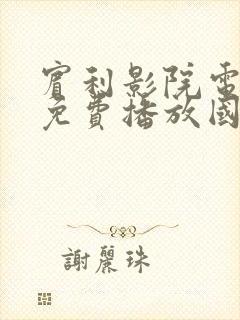 賓利影院電
免費播放國
謝麗珠